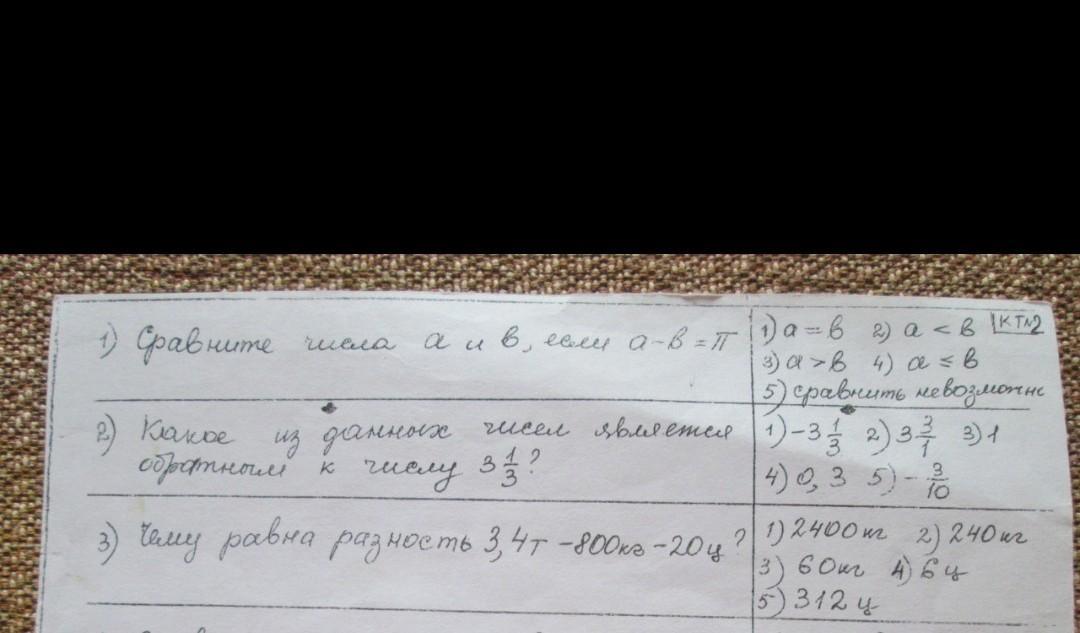 1) Сравните числа a и b, если a-b=π
1) a=b 2) a<b КТ№2
3) a>b 4) a≤b
5) сравнить невозможно
2) Какое из данных чисел является
обратным к числу 3 1/3?
1) -3 1/3 2) 3 3/1 3) 1
4) 0,3 5) -3/10
3) Чему равна разность 3,4т -800кг -20ц?
1) 2400кг 2) 240кг
3) 60кг 4) 6ц
5) 312ц